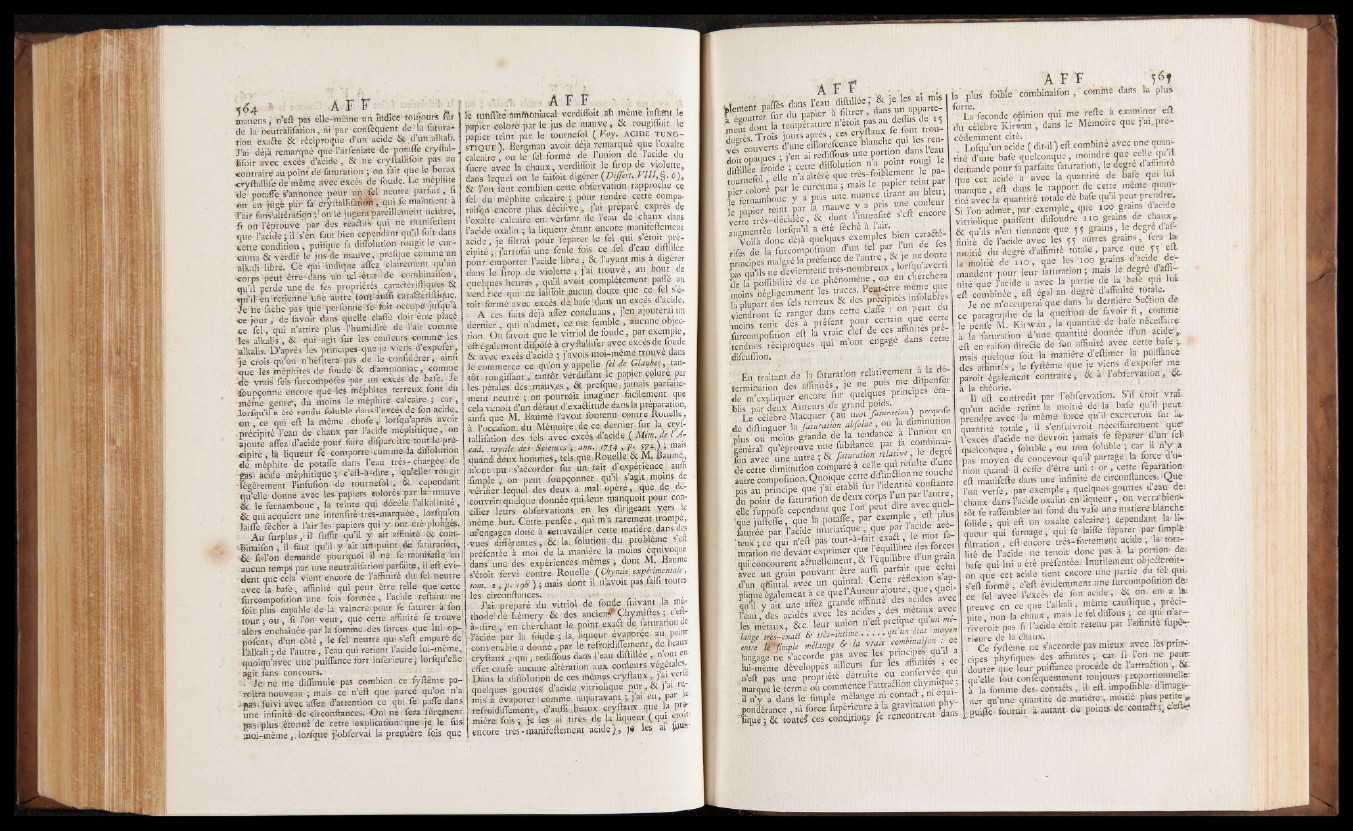 564 AFF
manens, n'eſt pas elle-même un indice toujours ſûr
de la neutraliſation, ni par conſéquent de la ſatura-
tion exacte & réciproque d'un acide & d'un alkali.
J'ai déjà remarqué que l'arſeniate de potaſſe cryſtal-
liſoit avec excès d'acide, & ne cryſtalliſoit pas au
contraire au point de ſaturation ; on ſait que le borax
cryſtalliſe de même avec excès de ſoude. Le méphite
de potaſſe s'annonce pour un ſel neutre parfait, ſi
on en juge par ſa cryſtalliſation, qui ſe maintient à
l'air ſans altération ; on le jugera pareillement neutre,
ſi on l'éprouve par des réactifs qui ne manifeſtent
que l'acide ; il s'en faut bien cependant qu'il ſoit dans
cette condition, puiſque ſa diſſolution rougit le cur-
cuma & verdit le jus de mauve, preſque comme un
alkali libre. Ce qui indique aſſez clairement qu'un
corps peut être dans un tel état de combinaiſon,
qu'il perde une de ſes propriétés caractériſtiques &
qu'il en retienne une autre tout auſſi caractériſtique.
Je ne ſache pas que perſonne ſe ſoit occupé juſqu'à
ce jour, de ſavoir dans quelle claſſe doit être placé
ce ſel, qui n'attire plus l'humidité de l'air comme
les alkalis, & qui agit ſur les couleurs comme les
alkalis. D'après les principes que je viens d'expoſer,
je crois qu'on n'héſitera pas de le conſidérer, ainſi
que les méphites de ſoude & d'ammoniac, comme
de vrais ſels ſurcompoſés par un excès de baſe. Je
ſoupçonne encore que les méphites terreux ſont du
même genre, du moins le méphite calcaire ; car,
lorſqu'il a été rendu ſoluble dans l'excès de ſon acide,
on, ce qui eſt la même choſe, lorſqu'après avoir
précipité l'eau de chaux par l'acide méphitique, on
ajoute aſſez d'acide pour faire diſparoître tout le pré-
cipité, la liqueur ſe comporte comme la diſſolution
de méphite de potaſſe dans l'eau très-chargée de
gas acide méphitique ; c'eſt-à-dire, qu'elle rougit
légèrement l'infuſion de tourneſol, & cependant
qu'elle donne avec les papiers colorés par la mauve
& le fernambouc, la teinte qui décèle l'alkalinité,
& qui acquiert une intenſité très-marquée, lorſqu'on
laiſſe ſécher à l'air les papiers qui y ont été plongés.
Au ſurplus, il ſuffit qu'il y ait affinité & com-
binaiſon, il faut qu'il y ait un point de ſaturation,
& ſi l'on demande pourquoi il ne ſe manifeſte en
aucun temps par une neutraliſation parfaite, il eſt évi-
dent que cela vient encore de l'affinité du ſel neutre
avec la baſe, affinité qui peut être telle que cette
ſurcompoſition une fois formée, l'acide reſtant ne
ſoit plus capable de la vaincre pour ſe ſaturer à ſon
tour ; ou, ſi l'on veut, que cette affinité ſe trouve
alors enchaînée par la ſomme des forces que lui op-
poſent, d'un côté, le ſel neutre qui s'eſt emparé de
l'alkali ; de l'autre, l'eau qui retient l'acide lui-même,
quoiqu'avec une puiſſance fort inférieure ; lorſqu'elle
agit ſans concours.
Je ne me diſſimule pas combien ce ſyſtême pa-
roîtra nouveau ; mais ce n'eſt que parce qu'on n'a
pas ſuivi avec aſſez d'attention ce qui ſe paſſe dans
une infinité de circonſtances. On ne ſera ſûrement
pas plus étonné de cette explication que je le fus
moi-même, lorſque j'obſervai la première fois que
AFF
le tunſtite ammoniacal verdiſſoit ab même inſtant le
papier coloré par le jus de mauve, & rougiſſoit le
papier teint par le tourneſol (Voy. ACIDE TUNG-
STIQUE). Bergman avoit déjà remarqué que l'oxalte
calcaire, ou le ſel formé de l'union de l'acide du
ſucre avec la chaux, verdiſſoit le ſirop de violette,
dans lequel on le faiſoit digérer (Diſſert. VIII, §. 6),
& l'on ſent combien cette obſervation rapproche ce
ſel du méphite calcaire ; pour rendre cette compa-
raiſon encore plus déciſive, j'ai préparé exprès de
l'oxalte calcaire en verſant de l'eau de chaux dans
l'acide oxalin ; la liqueur étant encore manifeſtement
acide, je filtrai pour ſéparer le ſel qui s'étoit pré-
cipité ; j'arroſai une ſeule fois ce ſel d'eau diſtillée
pour emporter l'acide libre, & l'ayant mis à digérer
dans le ſirop de violette, j'ai trouvé, au bout de
quelques heures, qu'il avoit complétement paſſé au
verd : ce qui ne laiſſoit aucun doute que ce ſel s'é-
toit formé avec excès de baſe dans un excès d'acide.
A ces faits déjà aſſez concluans, j'en ajouterai un
dernier, qui n'admet, ce me ſemble, aucune objec-
tion. On ſavoit que le vitriol de ſoude, par exemple,
eſt également diſpoſé à cryſtalliſer avec excès de ſoude
& avec excès d'acide ; j'avois moi-même trouvé dans
le commerce ce qu'on y appelle ſel de Glauber, tan-
tôt rougiſſant, tantôt verdiſſant le papier coloré par
les pétales des mauves, & preſque jamais parfaite-
ment neutre ; on pourroit imaginer facilement que
cela venoit d'un défaut d'exactitude dans la préparation,
ainſi que M. Baumé l'avoit ſoutenu contre Rouelle,
à l'occaſion du Mémoire de ce dernier ſur la cryſ-
talliſation des ſels avec excès d'acide (Mém. de l'A-
cad. royale des Sciences, ann. 1754, p. 572) ; mais
quand deux hommes, tels que Rouelle & M. Baumé,
n'ont pu s'accorder ſur un fait d'expérience auſſi
ſimple, on peut ſoupçonner qu'il s'agit moins de
vérifier lequel des deux a mal opéré, que de dé-
couvrir quelque donnée qui leur manquoit pour con-
cilier leurs obſervations en les dirigeant vers le
même but. Cette penſée, qui m'a rarement trompé,
m'engagea donc à retravailler cette matière dans des
vues différentes, & la ſolution du problème s'eſt
préſentée à moi de la manière la moins équivoque
dans une des expériences mêmes, dont M. Baumé
s'étoit ſervi contre Rouelle (Chymie expérimentale,
tom. 2, p. 196) ; mais dont il n'avoit pas ſaiſi toutes
les circonſtances.
J'ai préparé du vitriol de ſoude ſuivant la mé-
thode de Lémery & des anciens Chymiſtes ; c'eſt-
à-dire, en cherchant le point exact de ſaturation de
l'acide par la ſoude ; la liqueur évaporée au point
convenable a donné, par le refroidiſſement, de beaux
cryſtaux, qui, rediſſous dans l'eau diſtillée, n'ont en
effet cauſé aucune altération aux couleurs végétales.
Dans la diſſolution de ces mêmes cryſtaux, j'ai verſé
quelques gouttes d'acide vitriolique pur, & j'ai re-
mis à évaporer comme auparavant ; j'ai eu, par le
refroidiſſement, d'auſſi beaux cryſtaux que la pre-
mière fois ; je les ai tirés de la liqueur (qui étoit
encore très-manifeſtement acide), je les ai ſim-
AFF
plement paſſés dans l'eau diſtillée, & je les ai mis
à égoutter ſur du papier à filtrer, dans un apparte-
ment dont la température n'étoit pas au deſſus de 15
degrés. Trois jours après, ces cryſtaux ſe ſont trou-
vés couverts d'une effloreſcence blanche qui les ren-
doit opaques ; j'en ai rediſſous une portion dans l'eau
diſtillée froide ; cette diſſolution n'a point rougi le
tourneſol, elle n'a altéré que très-foiblement le pa-
pier coloré par le curcuma ; mais le papier teint par
le fernambouc y a pris une nuance tirant au bleu ;
le papier teint par la mauve y a pris une couleur
verte très-décidée, & dont l'intenſité s'eſt encore
augmentée lorſqu'il a été ſéché à l'air.
Voilà donc déjà quelques exemples bien caracté-
riſés de la ſurcompoſition d'un ſel par l'un de ſes
principes malgré la préſence de l'autre, & je ne doute
pas qu'ils ne deviennent très-nombreux, lorſqu'averti
de la poſſibilité de ce phénomène, on en cherchera
moins négligemment les traces. Peut-être même que
la plupart des ſels terreux & des précipités inſolubles
viendront ſe ranger dans cette claſſe : on peut du
moins tenir dès à préſent pour certain que cette
ſurcompoſition eſt la vraie clef de ces affinités pré-
tendues réciproques qui m'ont engagé dans cette
diſcuſſion.
En traitant de la ſaturation relativement à la dé-
termination des affinités, je ne puis me diſpenſer
de m'expliquer encore ſur quelques principes éta-
blis par deux Auteurs de grand poids.
Le célèbre Macquer (au mot ſaturation) propoſe
de diſtinguer la ſaturation abſolue, ou la diminution
plus ou moins grande de la tendance à l'union en
général qu'éprouve une ſubſtance par ſa combinai-
ſon avec une autre ; & ſaturation relative, le degré
de cette diminution comparé à celle qui réſulte d'une
autre compoſition. Quoique cette diſtinction ne touche
pas au principe que j'ai établi ſur l'identité conſtante
du point de ſaturation de deux corps l'un par l'autre,
elle ſuppoſe cependant que l'on peut dire avec quel-
que juſteſſe, que la potaſſe, par exemple, eſt plus
ſaturée par l'acide muriatique, que par l'acide acé-
teux ; ce qui n'eſt pas tout-à-fait exact, le mot ſa-
turation ne devant exprimer que l'équilibre des forces
qui concourent actuellement, & l'équilibre d'un grain
avec un grain pouvant être auſſi parfait que celui
d'un quintal avec un quintal. Cette réflexion s'ap-
plique également à ce que l'Auteur ajoute, que, quoi-
qu'il y ait une aſſez grande affinité des acides avec
l'eau, des acides avec les acides, des métaux avec
les métaux, &c. leur union n'eſt preſque qu'un mé-
lange très-exact & très-intime..... qu'un état moyen
entre le ſimple mélange & la vraie combinaiſon : ce
langage ne s'accorde pas avec les principes qu'il a
lui-même développés ailleurs ſur les affinités ; ce
n'eſt pas une propriété détruite ou conſervée qui
marque le terme où commence l'attraction chymique ;
il n'y a dans le ſimple mélange ni contact, ni équi-
pondérance, ni force ſupérieure à la gravitation phy-
ſique ; & toutes ces conditions ſe rencontrent dans
AFF 565
la plus foible combinaiſon, comme dans la plus
forte.
La ſeconde opinion qui me reſte à examiner eſt
du célèbre Kirwan, dans le Mémoire que j'ai pré-
cédemment cité.
Lorſqu'un acide (dit-il) eſt combiné avec une quan-
tité d'une baſe quelconque, moindre que celle qu'il
demande pour ſa parfaite ſaturation, le degré d'affinité
que cet acide a avec la quantité de baſe qui lui
manque, eſt dans le rapport de cette même quan-
tité avec la quantité totale de baſe qu'il peut prendre.
Si l'on admet, par exemple, que 100 grains d'acide
vitriolique puiſſent diſſoudre 110 grains de chaux,
& qu'ils n'en tiennent que 55 grains, le degré d'af-
finité de l'acide avec les 55 autres grains, ſera la
moitié du degré d'affinité totale, parce que 55 eſt
la moitié de 110, que les 100 grains d'acide de-
mandent pour leur ſaturation ; mais le degré d'affi-
nité que l'acide a avec la partie de la baſe qui lui
eſt combinée, eſt égal au degré d'affinité totale.
Je ne m'occuperai que dans la dernière Section de
ce paragraphe de la queſtion de ſavoir ſi, comme
le penſe M. Kirwan, la quantité de baſe néceſſaire
à la ſaturation d'une quantité donnée d'un acide,
eſt en raiſon directe de ſon affinité avec cette baſe ;
mais quelque ſoit la manière d'eſtimer la puiſſance
des affinités, le ſyſtême que je viens d'expoſer me
paroît également contraire, & à l'obſervation, &
à la théorie.
Il eſt contredit par l'obſervation. S'il étoit vrai
qu'un acide retînt la moitié de la baſe qu'il peut
prendre avec la même force qu'il exerceroit ſur la
quantité totale, il s'enſuivroit néceſſairement que
l'excès d'acide ne devroit jamais ſe ſéparer d'un ſel
quelconque, ſoluble, ou non ſoluble ; car il n'y a
pas moyen de concevoir qu'il partage la force d'u-
nion quand il ceſſe d'être uni : or, cette ſéparation
eſt manifeſte dans une infinité de circonſtances. Que
l'on verſe, par exemple, quelques gouttes d'eau de
chaux dans l'acide oxalin en liqueur, on verra bien-
tôt ſe raſſembler au fond du vaſe une matière blanche
ſolide, qui eſt un oxalte calcaire ; cependant la li-
queur qui ſurnage, qui ſe laiſſe ſéparer par ſimple
filtration, eſt encore très-fortement acide ; la tota-
lité de l'acide ne tenoit donc pas à la portion de
baſe qui lui a été préſentée. Inutilement objecteroit-
on que cet acide tient encore une partie du ſel qui
s'eſt formé ; c'eſt évidemment une ſurcompoſition de
ce ſel avec l'excès de ſon acide, & on en a la
preuve en ce que l'alkali, même cauſtique, préci-
pite, non la chaux, mais le ſel diſſous ; ce qui n'ar-
riveroit pas ſi l'acide étoit retenu par l'affinité ſupé-
rieure de la chaux.
Ce ſyſtême ne s'accorde pas mieux avec les prin-
cipes phyſiques des affinités ; car ſi l'on ne peut
douter que leur puiſſance procède de l'attraction, &
qu'elle ſoit conſéquemment toujours proportionnelle
à la ſomme des contacts, il eſt impoſſible d'imagi-
ner qu'une quantité de matière, moitié plus petite,
puiſſe fournir à autant de points de contact ; c'eſt-